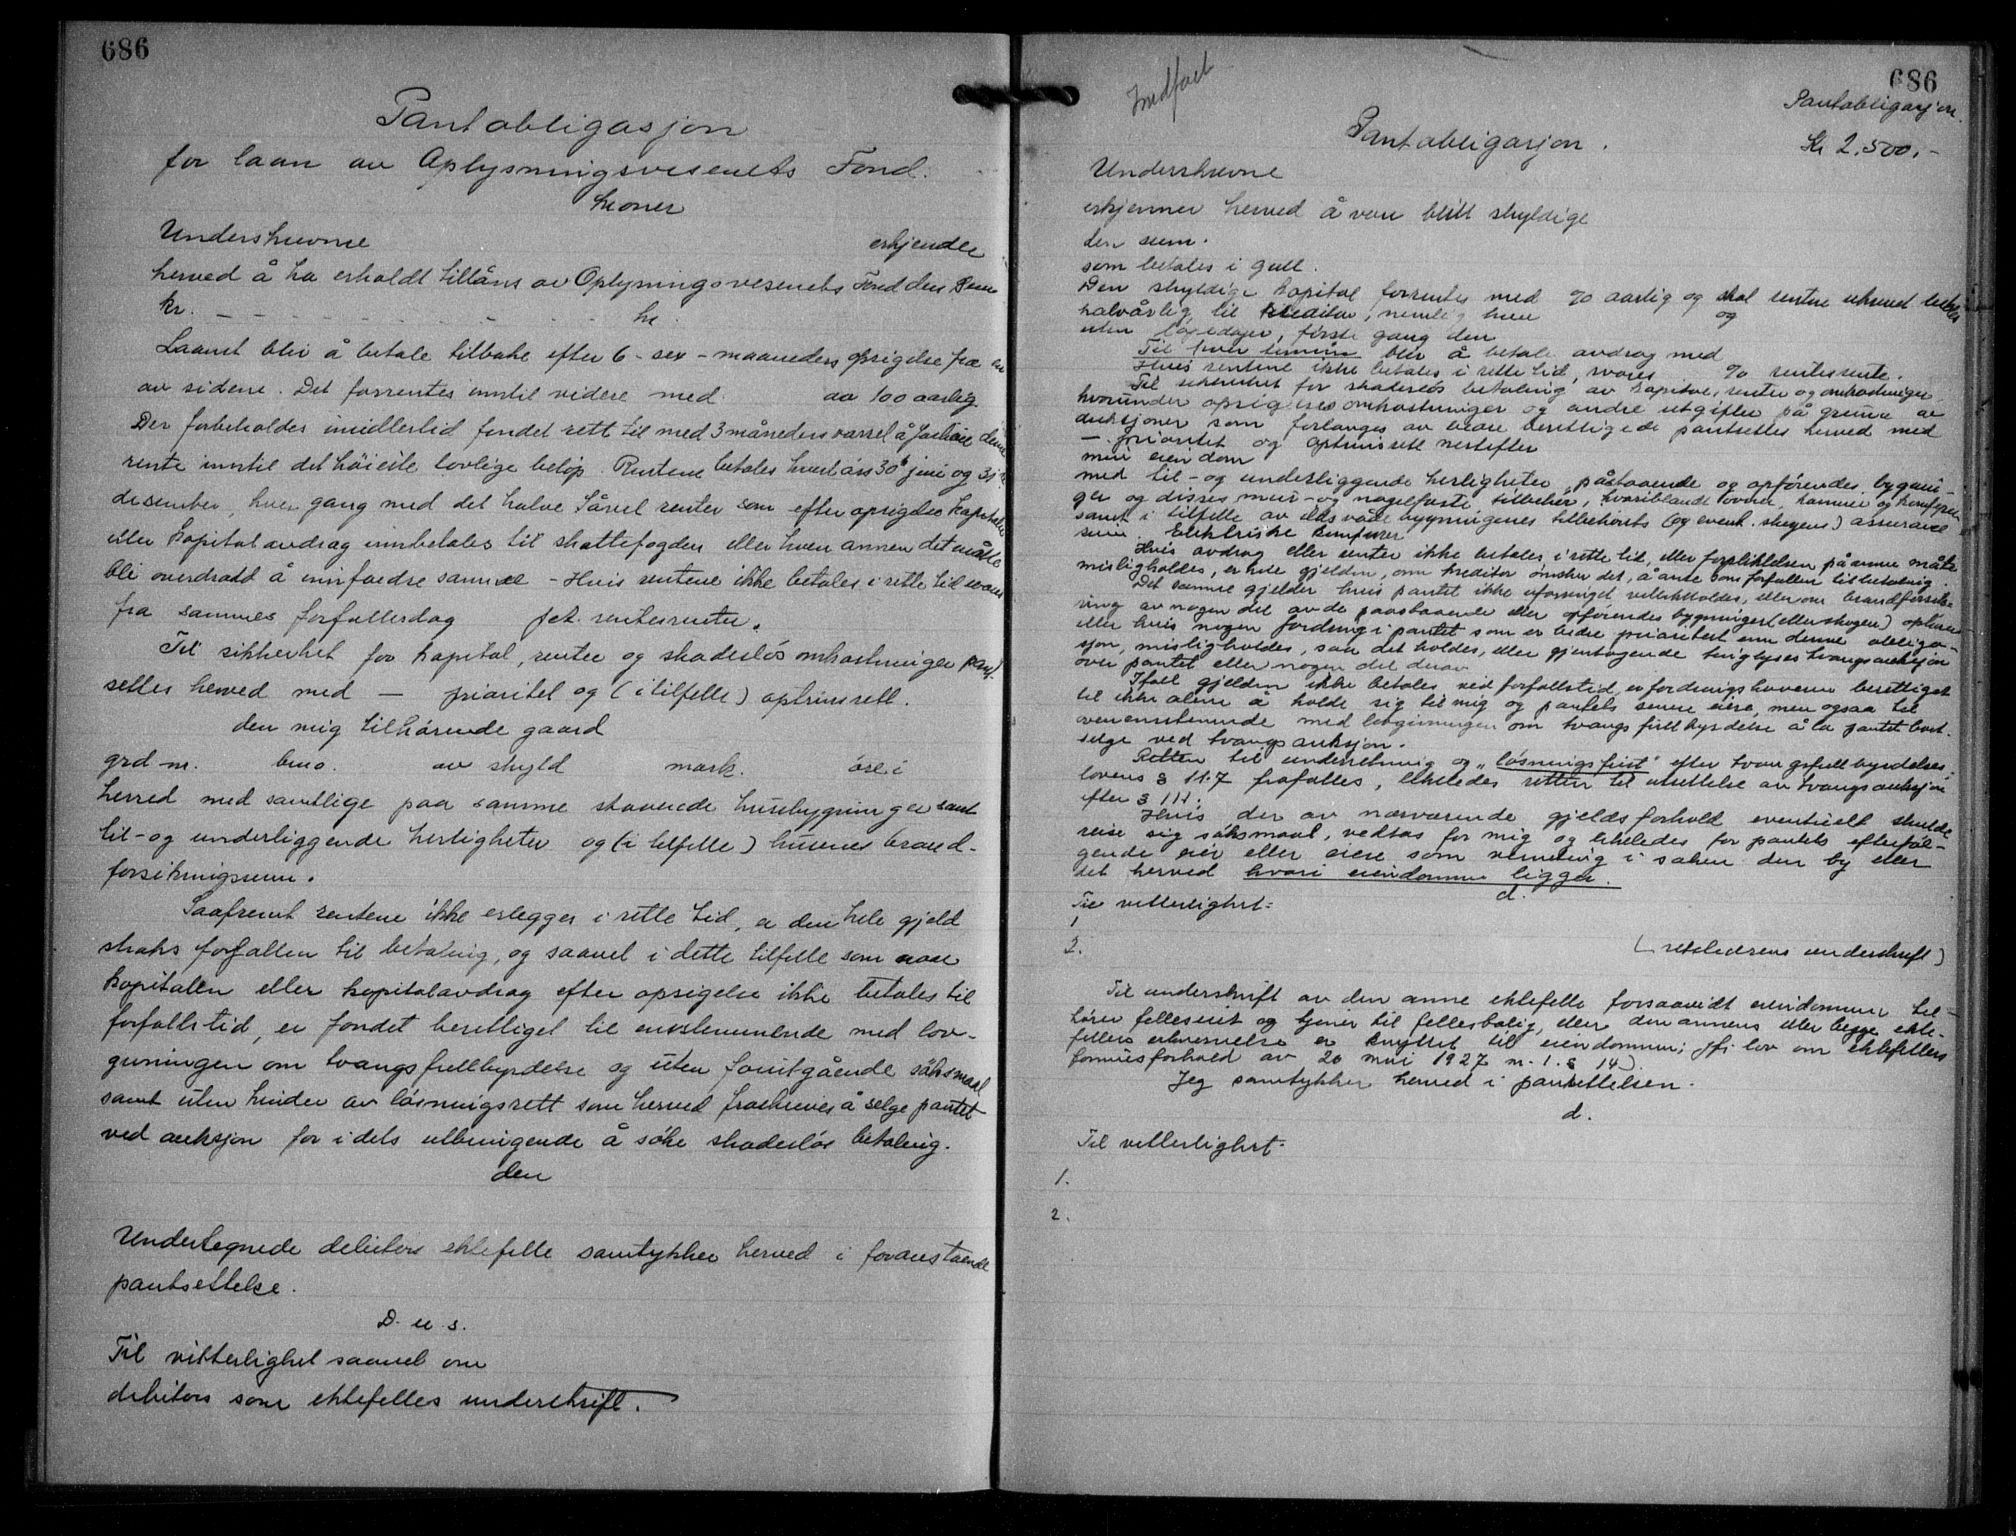 686
Pantobligasjon
for laan av Oplysningsvesenets Fond.
kroner
Underskrevne erkjender
herved å ha erholdt tillåns av Oplysningsvesenets Fond den Sum
kr. kr.
Laanet blir å betale tilbake efter 6 - sex - maaneders opsigelse fra en
av sidene. Det forrentes inntil videre med aa 100 aarlig
Der forbeholdes imidlertid fondet rett til med 3 måneders varsel å forhöie denne
rente inntil det höieste lovlige belöp. Rentene betales hvert års 30te juni og 31
desember, hver gang med det halve Såvel renter som efter opsigelse kapitalen
eller kapitalavdrag innbetales til skattefogden eller hvem annen det måtte
bli overdradd å innfordre samme - Hvis rentene ikke betales i rette tid svares
fra sammes forfallsdag pct. rentesrenter.
Til sikkerhet for kapital, renter og skadeslös omkostninger pant-
settes herved med - prioritet og (i tilfelle) optrinsrett.
den mig tilhörende gaard
grd-nr. bno. av skyld mark. öre i
herred med samtlige paa samme staaende husebygninger samt
til- og underliggende herligheter og (i tilfelle) husenes brand-
forsikringssum.
Saafremt rentene ikke erlegges i rette tid, er den hele gjeld
straks forfallen til betaling, og saavel i dette tilfelle som naar
kapitalen eller kapitalavdrag efter opsigelse ikke betales til
forfallstid, er fondet berettiget til overensstemmende med lov-
givningen om tvangsfullbyrdelse og uten forutgående söksmaal
samt uten hinder av lösningsrett som herved fraskrives å selge pantet
ved auksjon for i dets utbringende å söke skadeslös betaling.
den
Undertegnede debitors ektefelle samtykker herved i foranstaaende
pantsettelse.
D. u. s.
Til vitterlighet saavel om
debitors som ektefelles underskrift.
Indfört
686
Pantobligasjon.
Kr 2.500.-
Pantobligasjon.
Underskrevne
erkjenner herved å være blitt skyldige
den sum.
som betales i gull.
Den skyldige kapital forrentes med % aarlig og skal rentene ukrevet betales
halvårlig til kreditor, nemlig hver og
uten löpedager, förste gang den
Til hver termin blir å betale avdrag med
Hvis rentene ikke betales i rette tid, svares % rentesrente.
Til sikkerhet for skadeslös betaling av kapital, renter og omkostninger
hvorunder opsigelsesomkostninger og andre utgifter på grunn av
auksjoner som forlanges av bedre berettigede pantsettes herved med
- prioritet og optrinsrett nestefter
min eiendom
med til- og underliggende herligheter, påstaaende og opförendes bygnin-
ger og disses mur- og nagelfaste tilbehör, hvoriblandt ovner, kaminer og komfyrer
samt i tilfelle av ildsvåde bygningenes tilbehörets (og event. skogens) assuranse
sum. Elektriske komfyrer
Hvis avdrag eller renter ikke betales i rette tid, eller forpliktelsen på annen måte
misligholdes, er hele gjelden, om kreditor önsker det, å anse som forfallen til betaling.
Det samme gjelder hvis pantet ikke uforringet vedlikeholdes, eller om brandforsik-
ring av nogen del av de paastaaende eller opförendes bygninger (eller skogen) ophörer
eller hvis nogen fordring i pantet som er bedre prioritert enn denne obliga-
sjon, misligholdes, som det holdes, eller gjentagende tinglyses tvangsauksjon
over pantet eller nogen del derav
Ifall gjelden ikke betales ved forfallstid, er fordringshaveren berettiget
til ikke alene å holde sig til mig og pantets senere eiere, men ogsaa til
overensstemmende med lovgivningen om tvangsfullbyrdelse å la pantet bort-
selge ved tvangsauksjon.
Retten til underretning og "lösningsfrist" efter tvangsfullbyrdelses-
lovens § 117 frafalles, likeledes retten til utsettelse av tvangsauksjon
efter § 111.
Hvis der av nærværende gjeldsforhold eventuelt skulde
reise sig söksmaal, vedtas for mig og likeledes for pantets efterföl-
gende eier eller eiere som verneting i saken den by eller
det herred hvori eiendommen ligger.
d.
Til vitterlighet:
1
2.
( utstederens underskrift )
Til underskrift av den anne ektefelle forsaavidt eiendommen til-
hörer felleseiet og tjener til fellesbolig, eller den annens eller begge ekte-
fellers erhvervelse er knyttet til eiendommen; jfr. lov om ektefellers
formuesforhold av 20 mai 1927 nr. 1. § 14).
Jeg samtykker herved i pantsettelsen.
d.
Til vitterlighet:
1.
2.